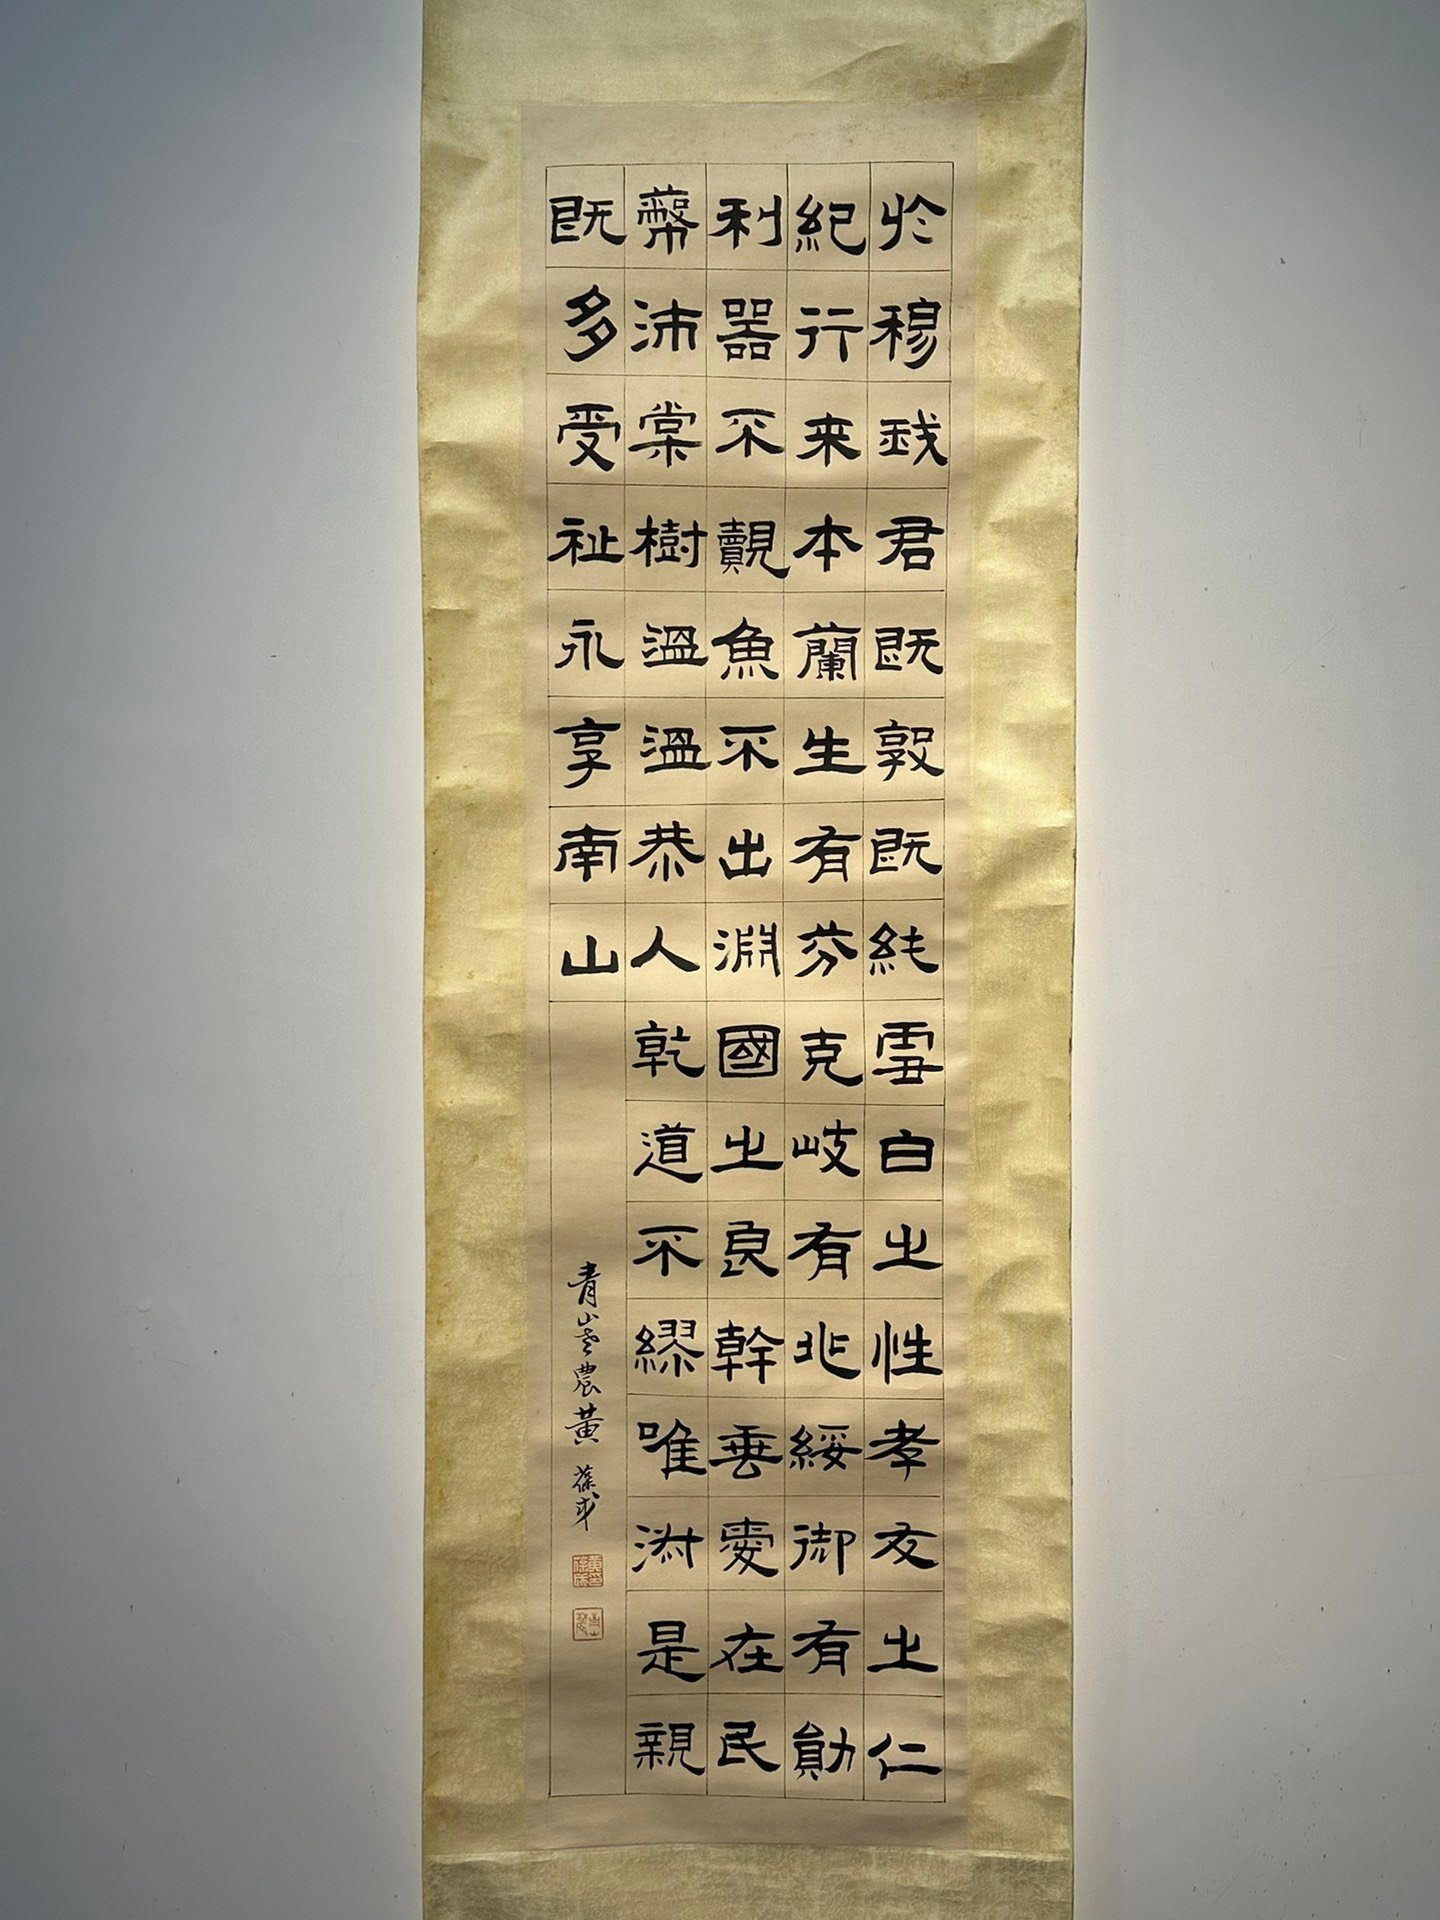 於穆我君既敦既純雪白之性孝友之仁
紀行来本蘭生有芬克岐有兆綏御有勛
利器不覿魚不出淵國之良幹垂愛在民
蔽沛棠樹溫溫恭人乾道不繆唯淑是親
既多受祉永享南山
青山老農黃葆戉